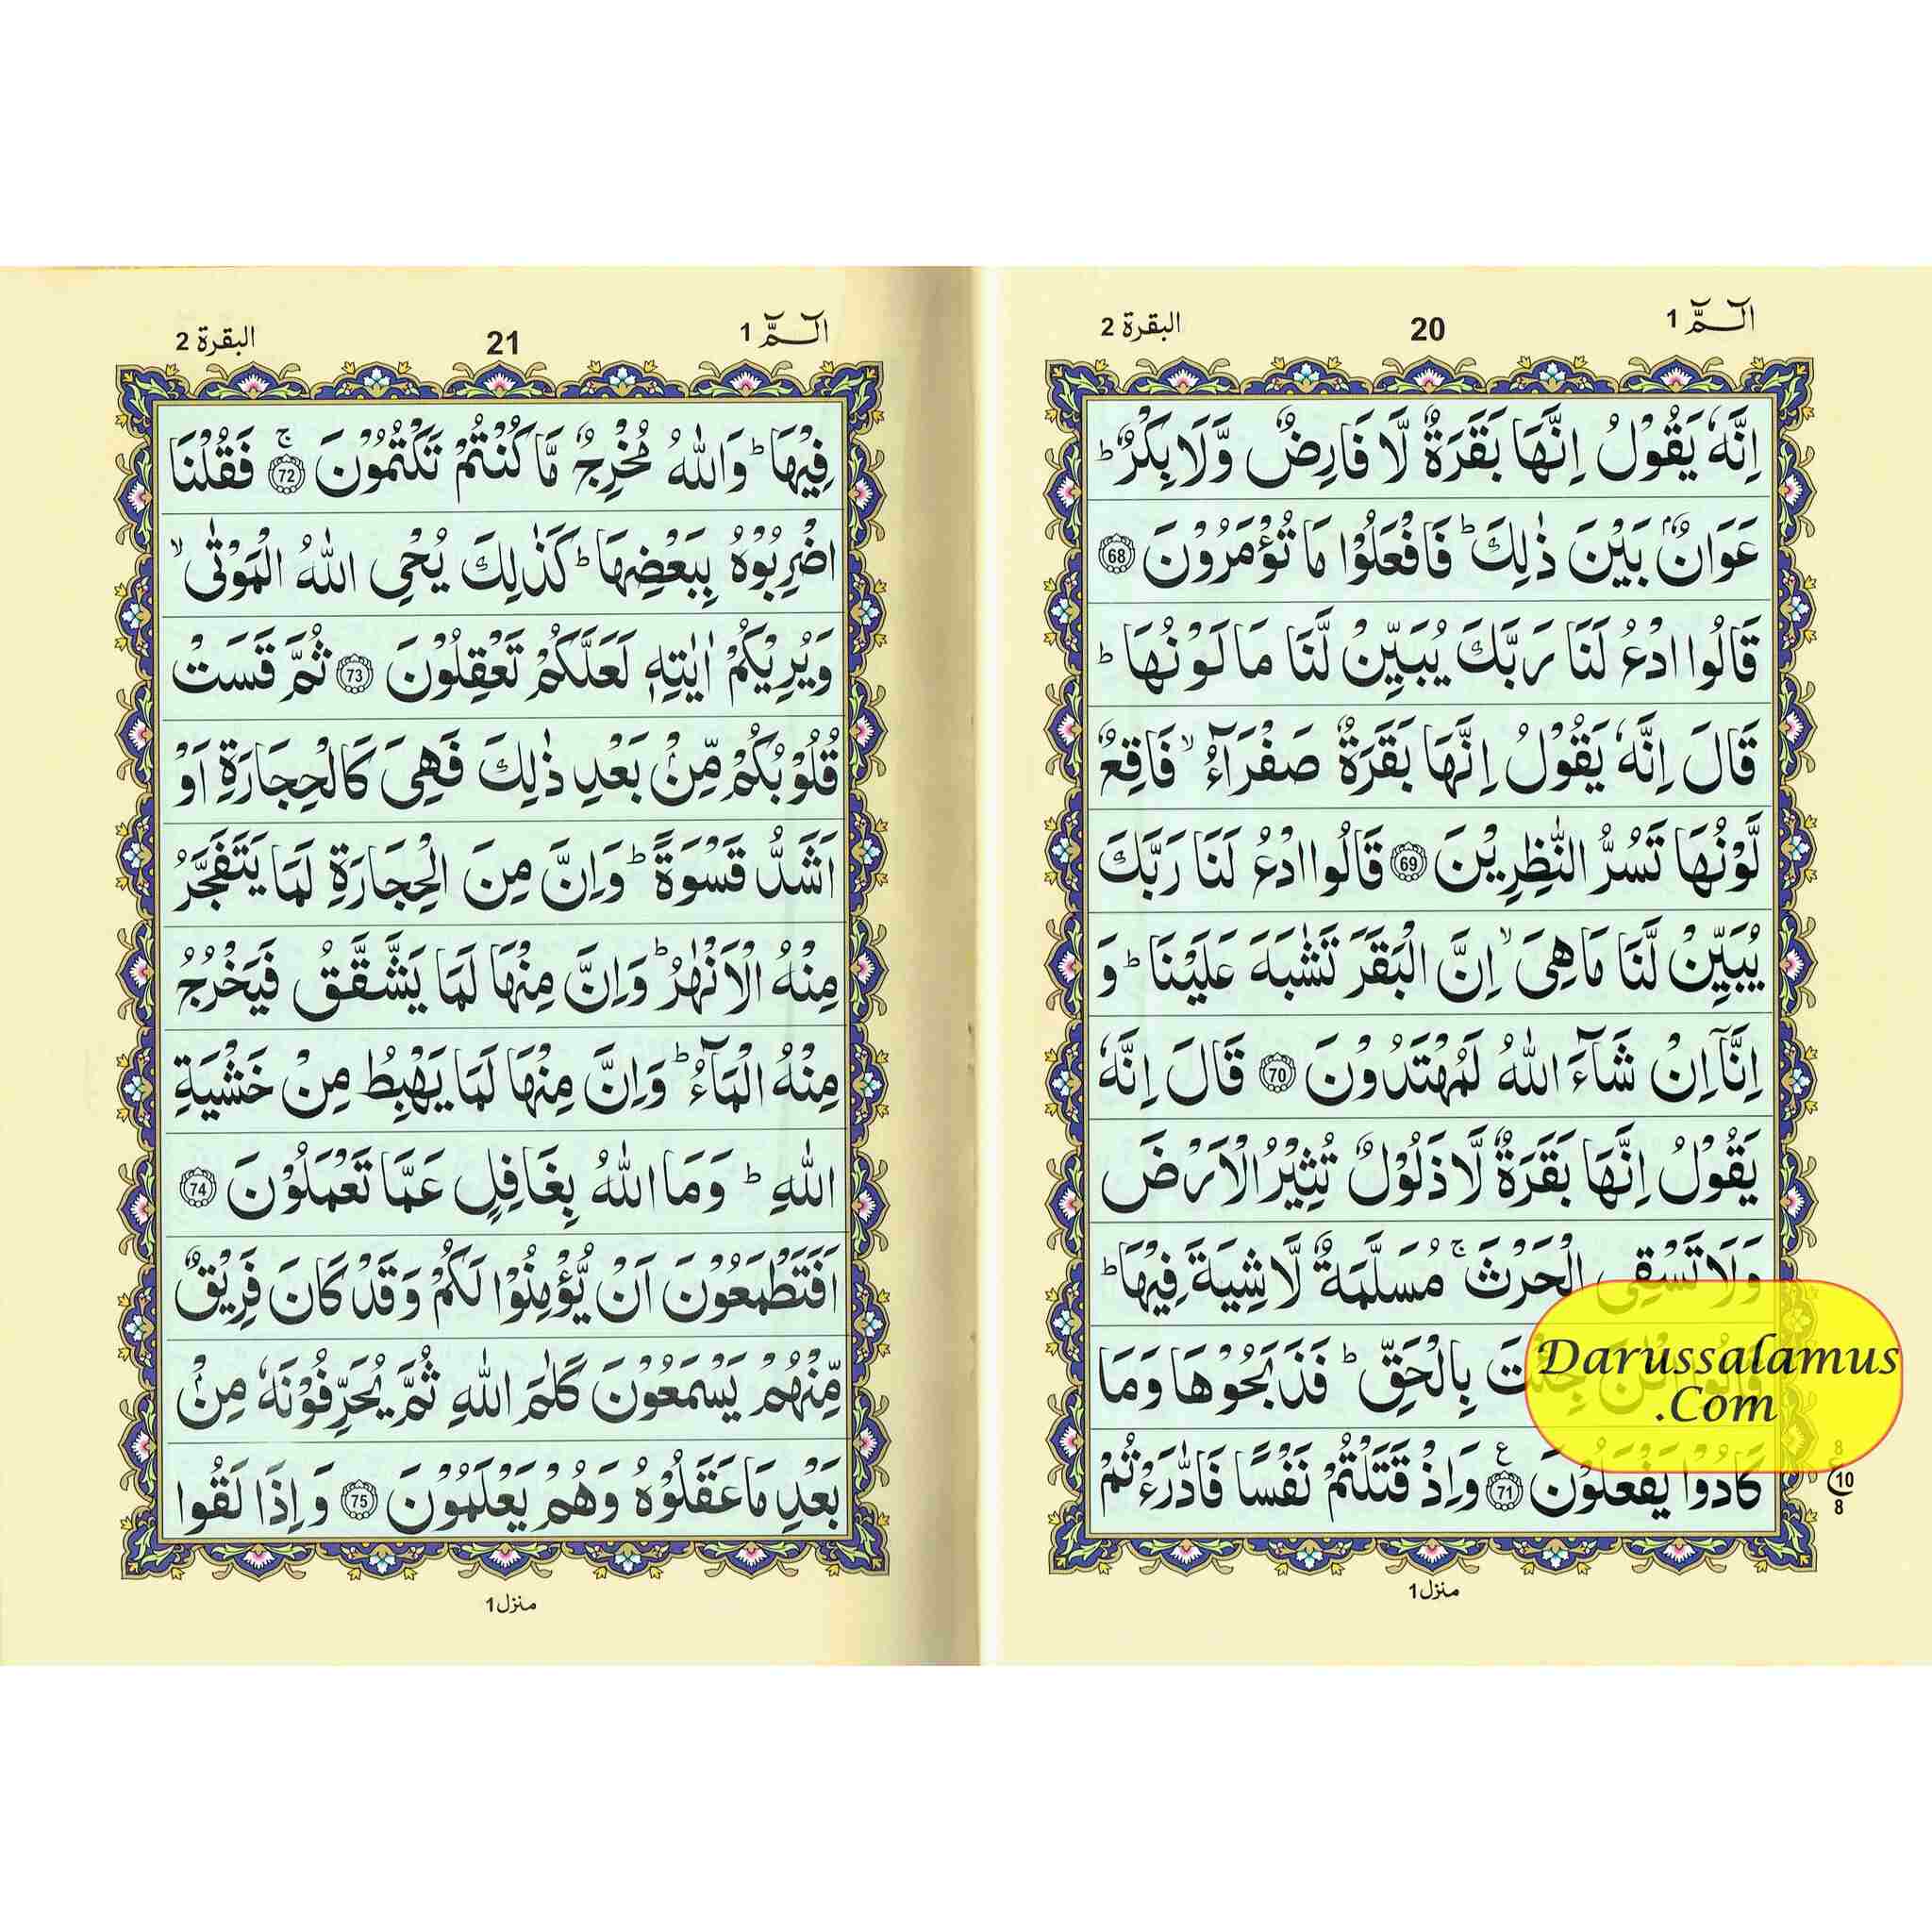 الٓـمّٓ 1
20
البقرة 2
اِنَّهٗ يَقُوْلُ اِنَّهَا بَقَرَةٌ لَّا فَارِضٌ وَّلَا بِكْرٌ ؕ
عَوَانٌۢ بَيْنَ ذٰلِكَ ؕ فَافْعَلُوْا مَا تُؤْمَرُوْنَ 68
قَالُوا ادْعُ لَنَا رَبَّكَ يُبَيِّنْ لَّنَا مَا لَوْنُهَا ؕ
قَالَ اِنَّهٗ يَقُوْلُ اِنَّهَا بَقَرَةٌ صَفْرَآءُ ۙ فَاقِعٌ
لَّوْنُهَا تَسُرُّ النّٰظِرِيْنَ 69 قَالُوا ادْعُ لَنَا رَبَّكَ
يُبَيِّنْ لَّنَا مَا هِىَ ۙ اِنَّ الْبَقَرَ تَشٰبَهَ عَلَيْنَا ؕ وَ
اِنَّآ اِنْ شَآءَ اللّٰهُ لَمُهْتَدُوْنَ 70 قَالَ اِنَّهٗ
يَقُوْلُ اِنَّهَا بَقَرَةٌ لَّا ذَلُوْلٌ تُثِيْرُ الْاَرْضَ
وَلَا تَسْقِى الْحَرْثَ ۚ مُسَلَّمَةٌ لَّا شِيَةَ فِيْهَا ؕ
قَالُوا الْـٰٔنَ جِئْتَ بِالْحَقِّ ؕ فَذَبَحُوْهَا وَمَا
كَادُوْا يَفْعَلُوْنَ 71 ع وَاِذْ قَتَلْتُمْ نَفْسًا فَادّٰرَءْتُمْ
8
ع 10
8
Darussalamus
.Com
منزل 1
الٓـمّٓ 1
21
البقرة 2
فِيْهَا ؕ وَاللّٰهُ مُخْرِجٌ مَّا كُنْتُمْ تَكْتُمُوْنَ 72 ۚ فَقُلْنَا
اضْرِبُوْهُ بِبَعْضِهَا ؕ كَذٰلِكَ يُحْىِ اللّٰهُ الْمَوْتٰى ۙ
وَيُرِيْكُمْ اٰيٰتِهٖ لَعَلَّكُمْ تَعْقِلُوْنَ 73 ثُمَّ قَسَتْ
قُلُوْبُكُمْ مِّنْۢ بَعْدِ ذٰلِكَ فَهِىَ كَالْحِجَارَةِ اَوْ
اَشَدُّ قَسْوَةً ؕ وَاِنَّ مِنَ الْحِجَارَةِ لَمَا يَتَفَجَّرُ
مِنْهُ الْاَنْهٰرُ ؕ وَاِنَّ مِنْهَا لَمَا يَشَّقَّقُ فَيَخْرُجُ
مِنْهُ الْمَآءُ ؕ وَاِنَّ مِنْهَا لَمَا يَهْبِطُ مِنْ خَشْيَةِ
اللّٰهِ ؕ وَمَا اللّٰهُ بِغَافِلٍ عَمَّا تَعْمَلُوْنَ 74
اَفَتَطْمَعُوْنَ اَنْ يُّؤْمِنُوْا لَكُمْ وَقَدْ كَانَ فَرِيْقٌ
مِّنْهُمْ يَسْمَعُوْنَ كَلٰمَ اللّٰهِ ثُمَّ يُحَرِّفُوْنَهٗ مِنْۢ
بَعْدِ مَا عَقَلُوْهُ وَهُمْ يَعْلَمُوْنَ 75 وَاِذَا لَقُوا
منزل 1